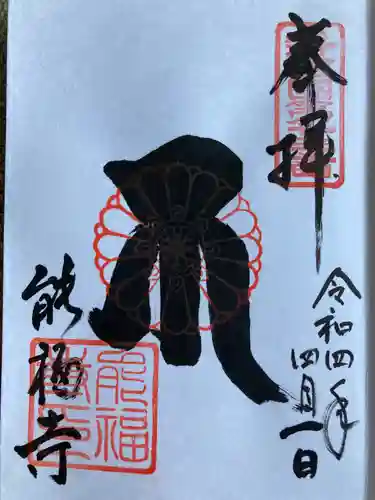 奉拝
令和四年
四月一日
能福寺
能福